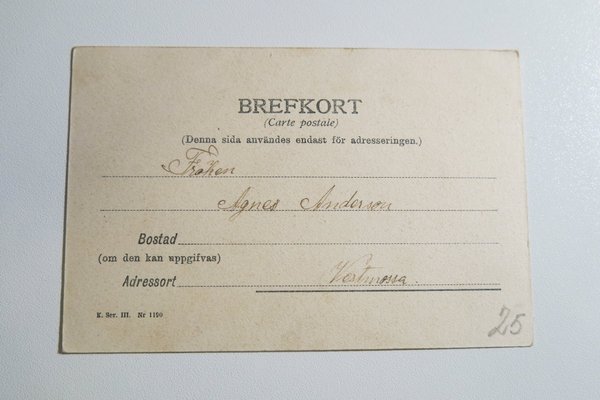 BREFKORT
(Carte postale)
(Denna sida användes endast för adresseringen.)
Fröken
Agnes Anderson
Bostad
(om den kan uppgifvas)
Adressort Vestmossa.
K. Ser. III. Nr 1190
25